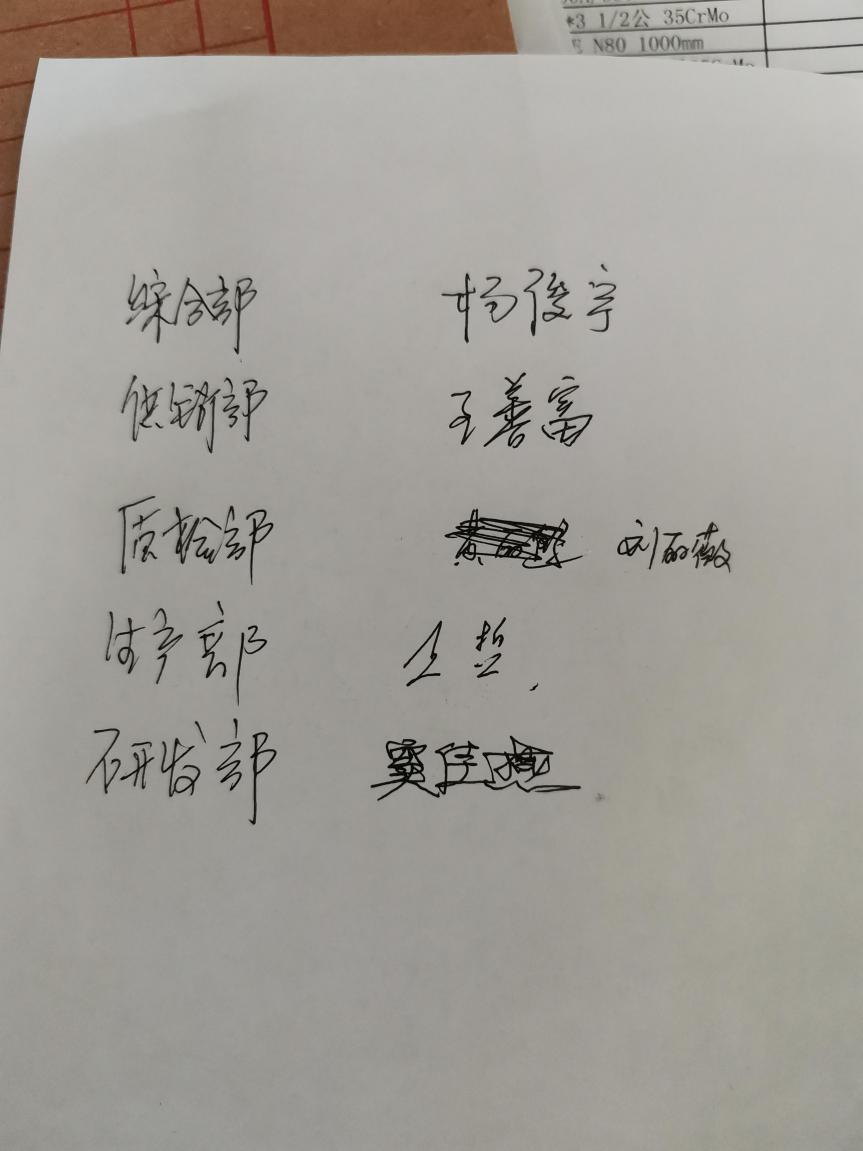 *3 1/2公 35CrMo
N80 1000mm
综合部 杨俊宇
供销部 王善富
质检部 刘丽薇
生产部 王哲
研发部